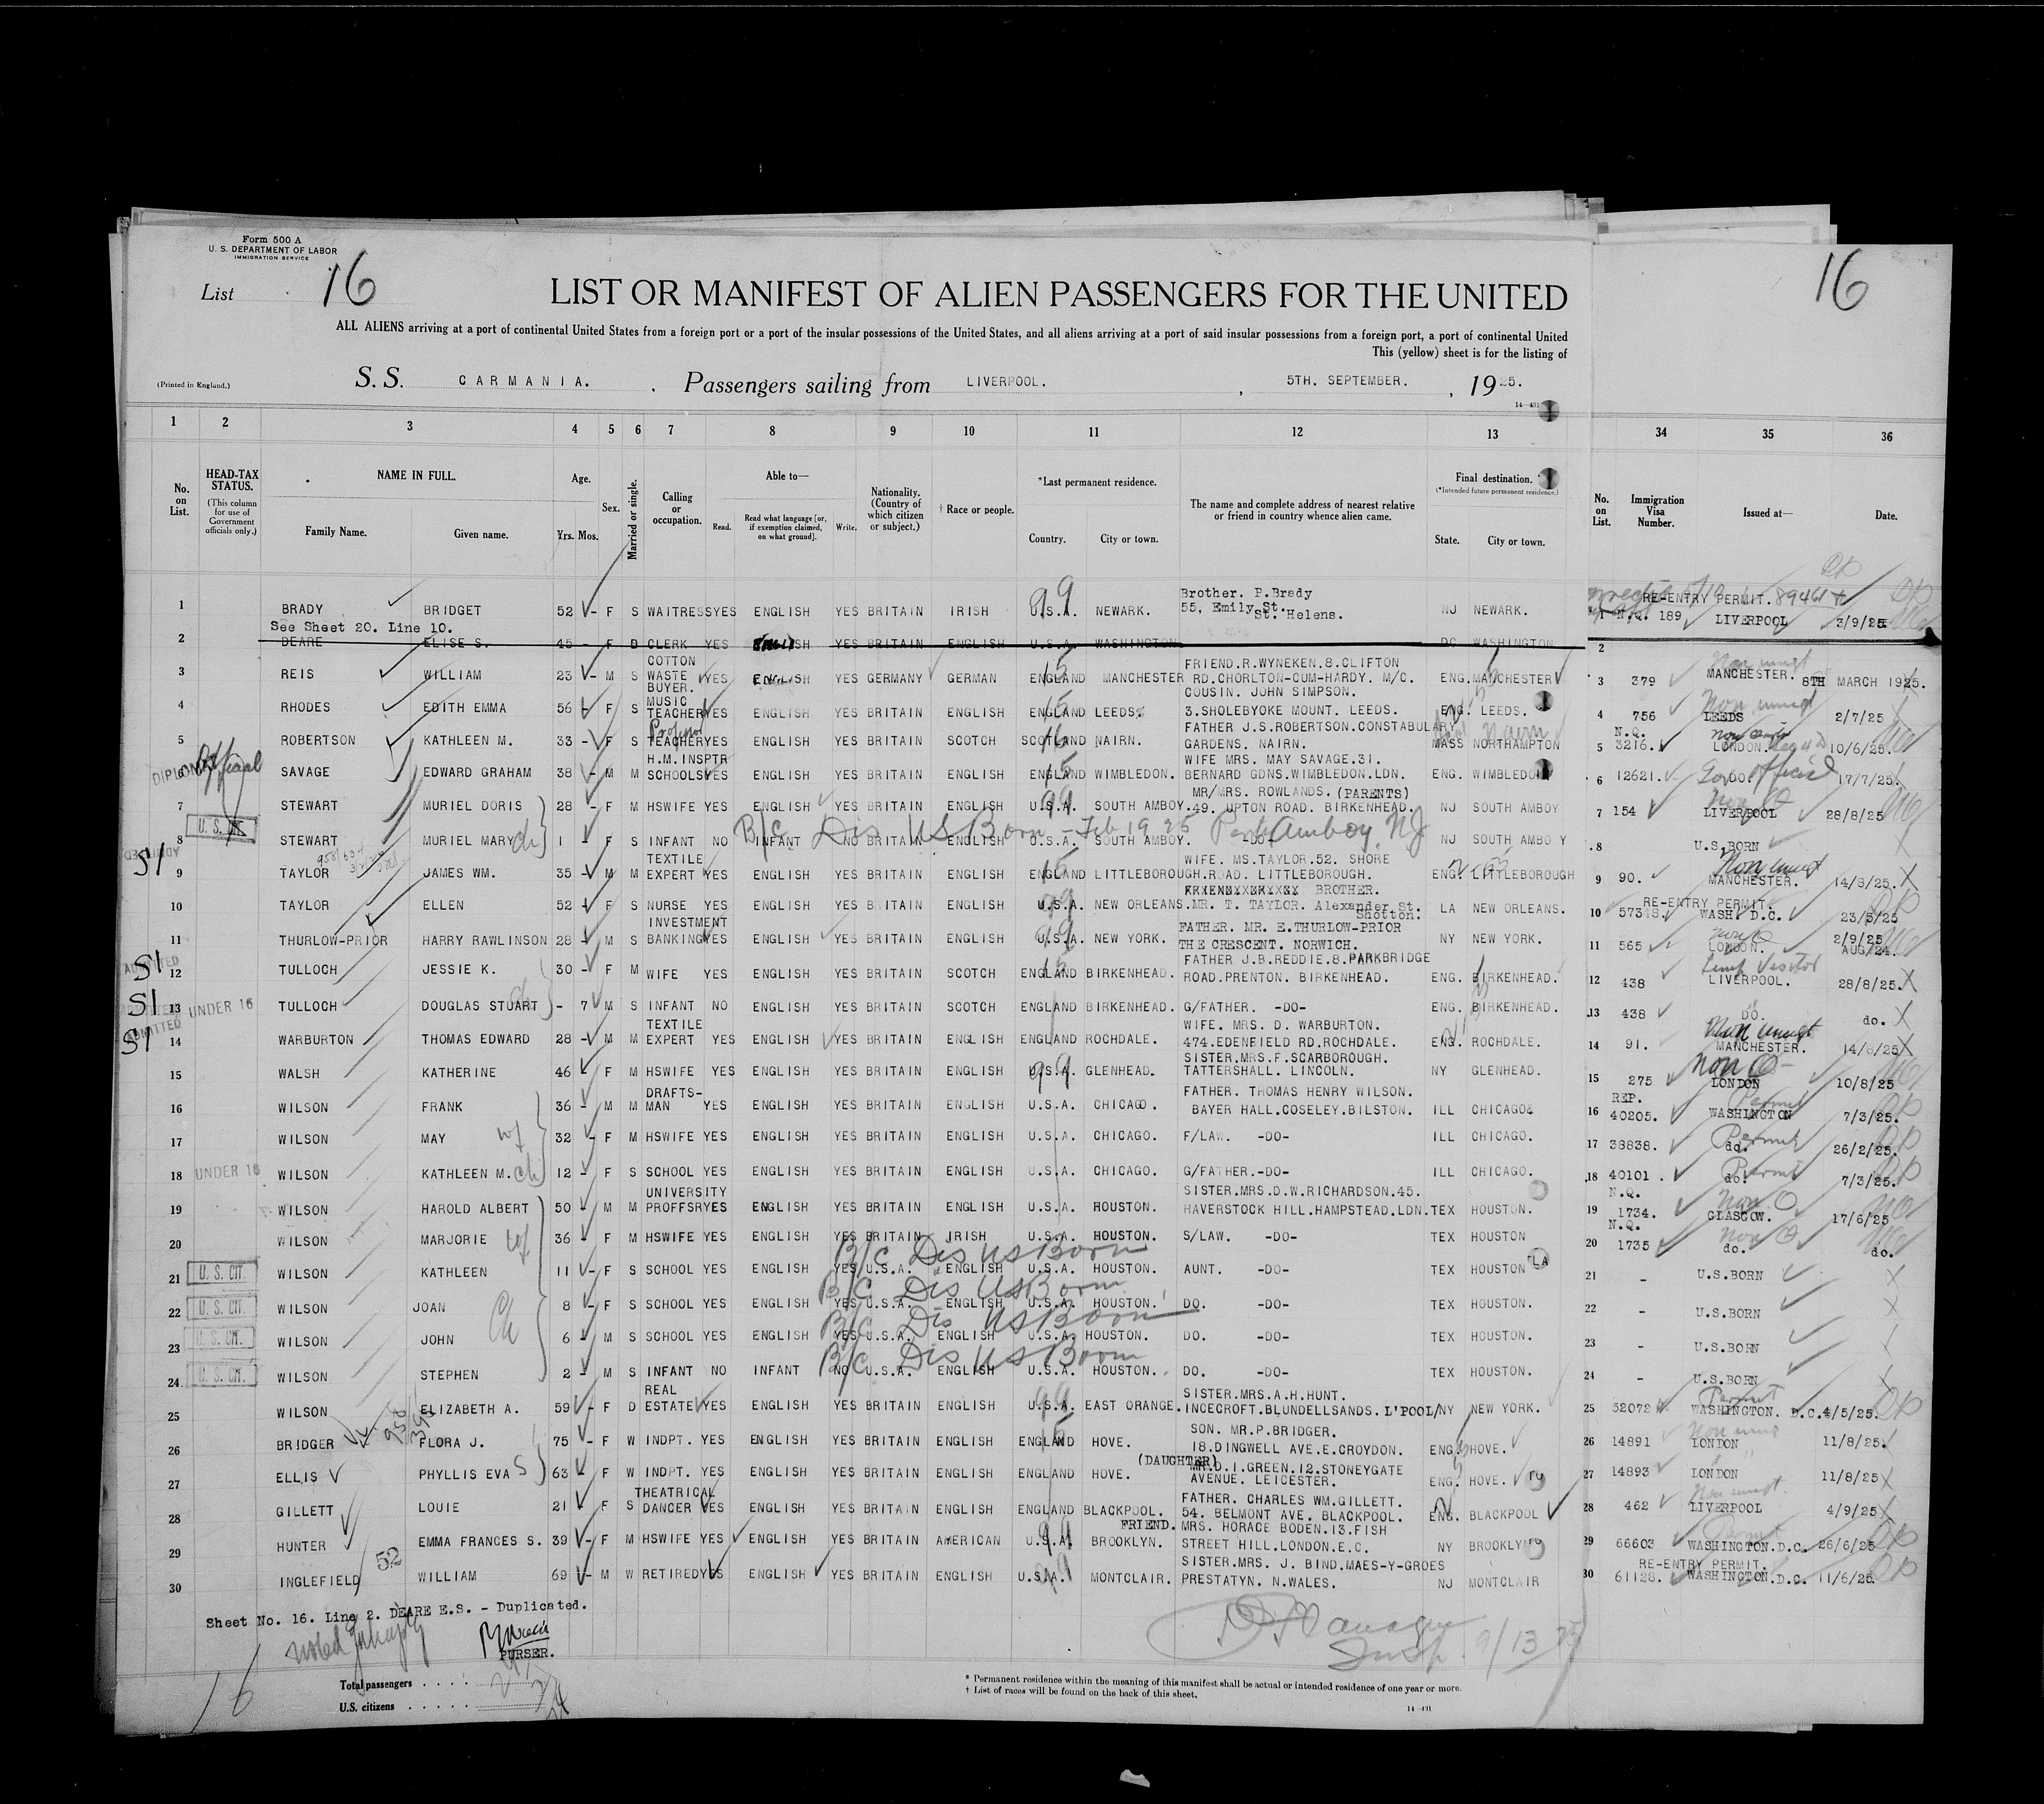 Form 500 A
U. S. DEPARTMENT OF LABOR
IMMIGRATION SERVICE
List 16
16
LIST OR MANIFEST OF ALIEN PASSENGERS FOR THE UNITED
ALL ALIENS arriving at a port of continental United States from a foreign port or a port of the insular possessions of the United States, and all aliens arriving at a port of said insular possessions from a foreign port, a port of continental United
This (yellow) sheet is for the listing of
(Printed in England.)
S. S. CARMANIA. Passengers sailing from LIVERPOOL. , 5TH. SEPTEMBER. , 1925.
14—431
1 2 3 4 5 6 7 8 9 10 11 12 13 34 35 36
No. on List. HEAD-TAX STATUS. (This column for use of Government officials only.) NAME IN FULL. Family Name. Given name. Age. Yrs. Mos. Sex. Married or single. Calling or occupation. Able to— Read. Read what language [or, if exemption claimed, on what ground]. Write. Nationality. (Country of which citizen or subject.) † Race or people. *Last permanent residence. Country. City or town. The name and complete address of nearest relative or friend in country whence alien came. Final destination. (*Intended future permanent residence.) State. City or town. No. on List. Immigration Visa Number. Issued at— Date.
1 BRADY BRIDGET 52 - F S WAITRESS YES ENGLISH YES BRITAIN IRISH U.S.A. NEWARK. Brother. P.Brady 55, Emily St. St. Helens. NJ NEWARK. 1 RE-ENTRY PERMIT. 89461 N.Q. 189 LIVERPOOL 2/9/25
See Sheet 20. Line 10.
2 DEARE ELISE S. 45 - F D CLERK YES ENGLISH YES BRITAIN ENGLISH U.S.A. WASHINGTON DC WASHINGTON 2
3 REIS WILLIAM 23 - M S COTTON WASTE BUYER. YES ENGLISH YES GERMANY GERMAN ENGLAND MANCHESTER FRIEND.R.WYNEKEN.8.CLIFTON RD.CHORLTON-CUM-HARDY. M/C. ENG. MANCHESTER 3 379 MANCHESTER. 8TH MARCH 1925.
4 RHODES EDITH EMMA 56 - F S MUSIC TEACHER YES ENGLISH YES BRITAIN ENGLISH ENGLAND LEEDS. COUSIN. JOHN SIMPSON. 3.SHOLEBYOKE MOUNT. LEEDS. ENG. LEEDS. 4 756 LEEDS 2/7/25
5 ROBERTSON KATHLEEN M. 33 - F S Professor TEACHER YES ENGLISH YES BRITAIN SCOTCH SCOTLAND NAIRN. FATHER J.S.ROBERTSON.CONSTABULARY GARDENS. NAIRN. MASS NORTHAMPTON Nairn 5 N.Q. 3216. LONDON. 10/6/25.
6 DIPLOMAT Official SAVAGE EDWARD GRAHAM 38 - M M H.M. INSPTR SCHOOLS YES ENGLISH YES BRITAIN ENGLISH ENGLAND WIMBLEDON. WIFE MRS. MAY SAVAGE.31. BERNARD GDNS.WIMBLEDON.LDN. ENG. WIMBLEDON 6 12621. Gov official DO. 17/7/25.
7 STEWART MURIEL DORIS 28 - F M HSWIFE YES ENGLISH YES BRITAIN ENGLISH U.S.A. SOUTH AMBOY. MR/MRS. ROWLANDS. (PARENTS) 49. UPTON ROAD. BIRKENHEAD. NJ SOUTH AMBOY 7 154 LIVERPOOL 28/8/25
B/C Dis US Born - Feb 19 25 Perth Amboy, NJ
8 STEWART MURIEL MARY ch 1 - F S INFANT NO INFANT NO BRITAIN ENGLISH U.S.A. SOUTH AMBOY. -DO- NJ SOUTH AMBOY 8 U.S.BORN
9 SI TAYLOR JAMES WM. 35 - M M TEXTILE EXPERT YES ENGLISH YES BRITAIN ENGLISH ENGLAND LITTLEBOROUGH. WIFE. MS.TAYLOR.52. SHORE ROAD. LITTLEBOROUGH. ENG. LITTLEBOROUGH 9 90. Non immgt MANCHESTER. 14/8/25.
10 TAYLOR ELLEN 52 - F S NURSE YES ENGLISH YES BRITAIN ENGLISH U.S.A. NEW ORLEANS. BROTHER. MR. T. TAYLOR. Alexander St. Shotton. LA NEW ORLEANS. 10 RE-ENTRY PERMIT. 57348. WASH. D.C. 23/5/25
11 THURLOW-PRIOR HARRY RAWLINSON 28 - M S INVESTMENT BANKING YES ENGLISH YES BRITAIN ENGLISH U.S.A. NEW YORK. FATHER. MR. E.THURLOW-PRIOR THE CRESCENT. NORWICH. NY NEW YORK. 11 565 LONDON. 2/9/25 AUG/24.
12 SI ADMITTED TULLOCH JESSIE K. 30 - F M WIFE YES ENGLISH YES BRITAIN SCOTCH ENGLAND BIRKENHEAD. FATHER J.B.REDDIE.8.PARKBRIDGE ROAD.PRENTON. BIRKENHEAD. ENG. BIRKENHEAD. 12 438 Temp Visitor LIVERPOOL. 28/8/25.
13 SI UNDER 16 TULLOCH DOUGLAS STUART - 7 M S INFANT NO ENGLISH YES BRITAIN SCOTCH ENGLAND BIRKENHEAD. G/FATHER. -DO- ENG. BIRKENHEAD. 13 438 DO. do.
14 SI ADMITTED WARBURTON THOMAS EDWARD 28 - M M TEXTILE EXPERT YES ENGLISH YES BRITAIN ENGLISH ENGLAND ROCHDALE. WIFE. MRS. D. WARBURTON. 474.EDENFIELD RD.ROCHDALE. ENG. ROCHDALE. 14 91. Non immgt MANCHESTER. 14/8/25
15 WALSH KATHERINE 46 F M HSWIFE YES ENGLISH YES BRITAIN ENGLISH U.S.A. GLENHEAD. SISTER.MRS.F.SCARBOROUGH. TATTERSHALL. LINCOLN. NY GLENHEAD. 15 275 LONDON 10/8/25
16 WILSON FRANK 36 - M M DRAFTS-MAN YES ENGLISH YES BRITAIN ENGLISH U.S.A. CHICAGO. FATHER. THOMAS HENRY WILSON. BAYER HALL.COSELEY.BILSTON. ILL CHICAGO. 16 REP. 40205. Permit WASHINGTON 7/3/25.
17 WILSON MAY wf 32 - F M HSWIFE YES ENGLISH YES BRITAIN ENGLISH U.S.A. CHICAGO. F/LAW. -DO- ILL CHICAGO. 17 38838. Permit do. 26/2/25.
18 UNDER 16 WILSON KATHLEEN M. ch 12 - F S SCHOOL YES ENGLISH YES BRITAIN ENGLISH U.S.A. CHICAGO. G/FATHER.-DO- ILL CHICAGO. 18 40101. Permit do. 7/3/25.
19 WILSON HAROLD ALBERT 50 - M M UNIVERSITY PROFFSR YES ENGLISH YES BRITAIN ENGLISH U.S.A. HOUSTON. SISTER.MRS.D.W.RICHARDSON.45. HAVERSTOCK HILL.HAMPSTEAD.LDN. TEX HOUSTON. 19 N.Q. 1734. GLASGOW. 17/6/25
20 WILSON MARJORIE wf 36 - F M HSWIFE YES ENGLISH YES BRITAIN IRISH U.S.A. HOUSTON. S/LAW. -DO- TEX HOUSTON 20 N.Q. 1735 do. do.
B/C Dis US Born
21 U. S. CIT. WILSON KATHLEEN 11 - F S SCHOOL YES ENGLISH YES U.S.A. ENGLISH U.S.A. HOUSTON. AUNT. -DO- TEX HOUSTON 21 - U.S.BORN
B/C Dis US Born
22 U. S. CIT. WILSON JOAN 8 - F S SCHOOL YES ENGLISH YES U.S.A. ENGLISH U.S.A. HOUSTON. DO. -DO- TEX HOUSTON. 22 - U.S.BORN
B/C Dis US Born
23 U. S. CIT. WILSON JOHN Ch 6 - M S SCHOOL YES ENGLISH YES U.S.A. ENGLISH U.S.A. HOUSTON. DO. -DO- TEX HOUSTON. 23 - U.S.BORN
B/C Dis US Born
24 U. S. CIT. WILSON STEPHEN 2 - M S INFANT NO INFANT NO U.S.A. ENGLISH U.S.A. HOUSTON. DO. -DO- TEX HOUSTON. 24 - U.S.BORN
25 WILSON ELIZABETH A. 59 - F D REAL ESTATE YES ENGLISH YES BRITAIN ENGLISH U.S.A. EAST ORANGE. SISTER.MRS.A.H.HUNT. INCECROFT.BLUNDELLSANDS. L'POOL/ NY NEW YORK. 25 52072 Permit WASHINGTON. D.C. 4/5/25.
26 BRIDGER FLORA J. 75 - F W INDPT. YES ENGLISH YES BRITAIN ENGLISH ENGLAND HOVE. SON. MR.P.BRIDGER. 18.DINGWELL AVE.E.CROYDON. ENG. HOVE. 26 14891 LONDON 11/8/25
27 ELLIS PHYLLIS EVA S 63 - F W INDPT. YES ENGLISH YES BRITAIN ENGLISH ENGLAND HOVE. (DAUGHTER) MR.D.I.GREEN.12.STONEYGATE AVENUE. LEICESTER. ENG. HOVE. 27 14893 LONDON 11/8/25
28 GILLETT LOUIE 21 F S THEATRICAL DANCER YES ENGLISH YES BRITAIN ENGLISH ENGLAND BLACKPOOL. FATHER. CHARLES WM.GILLETT. 54. BELMONT AVE. BLACKPOOL. ENG. BLACKPOOL 28 462 LIVERPOOL 4/9/25
29 HUNTER EMMA FRANCES S. 39 - F M HSWIFE YES ENGLISH YES BRITAIN AMERICAN U.S.A. BROOKLYN. FRIEND. MRS. HORACE BODEN.13.FISH STREET HILL.LONDON.E.C. NY BROOKLYN 29 66603 WASHINGTON.D.C. 26/6/25
30 INGLEFIELD 52 WILLIAM 69 - M W RETIRED YES ENGLISH YES BRITAIN ENGLISH U.S.A. MONTCLAIR. SISTER.MRS. J. BIND.MAES-Y-GROES PRESTATYN. N.WALES. NJ MONTCLAIR 30 RE-ENTRY PERMIT. 61128. WASHINGTON.D.C. 11/6/25.
Sheet No. 16. Line 2. DEARE E.S. - Duplicated.
PURSER.
Insp. 9/13/25
16
Total passengers . . . .
U.S. citizens . . . . .
* Permanent residence within the meaning of this manifest shall be actual or intended residence of one year or more.
† List of races will be found on the back of this sheet.
14—431